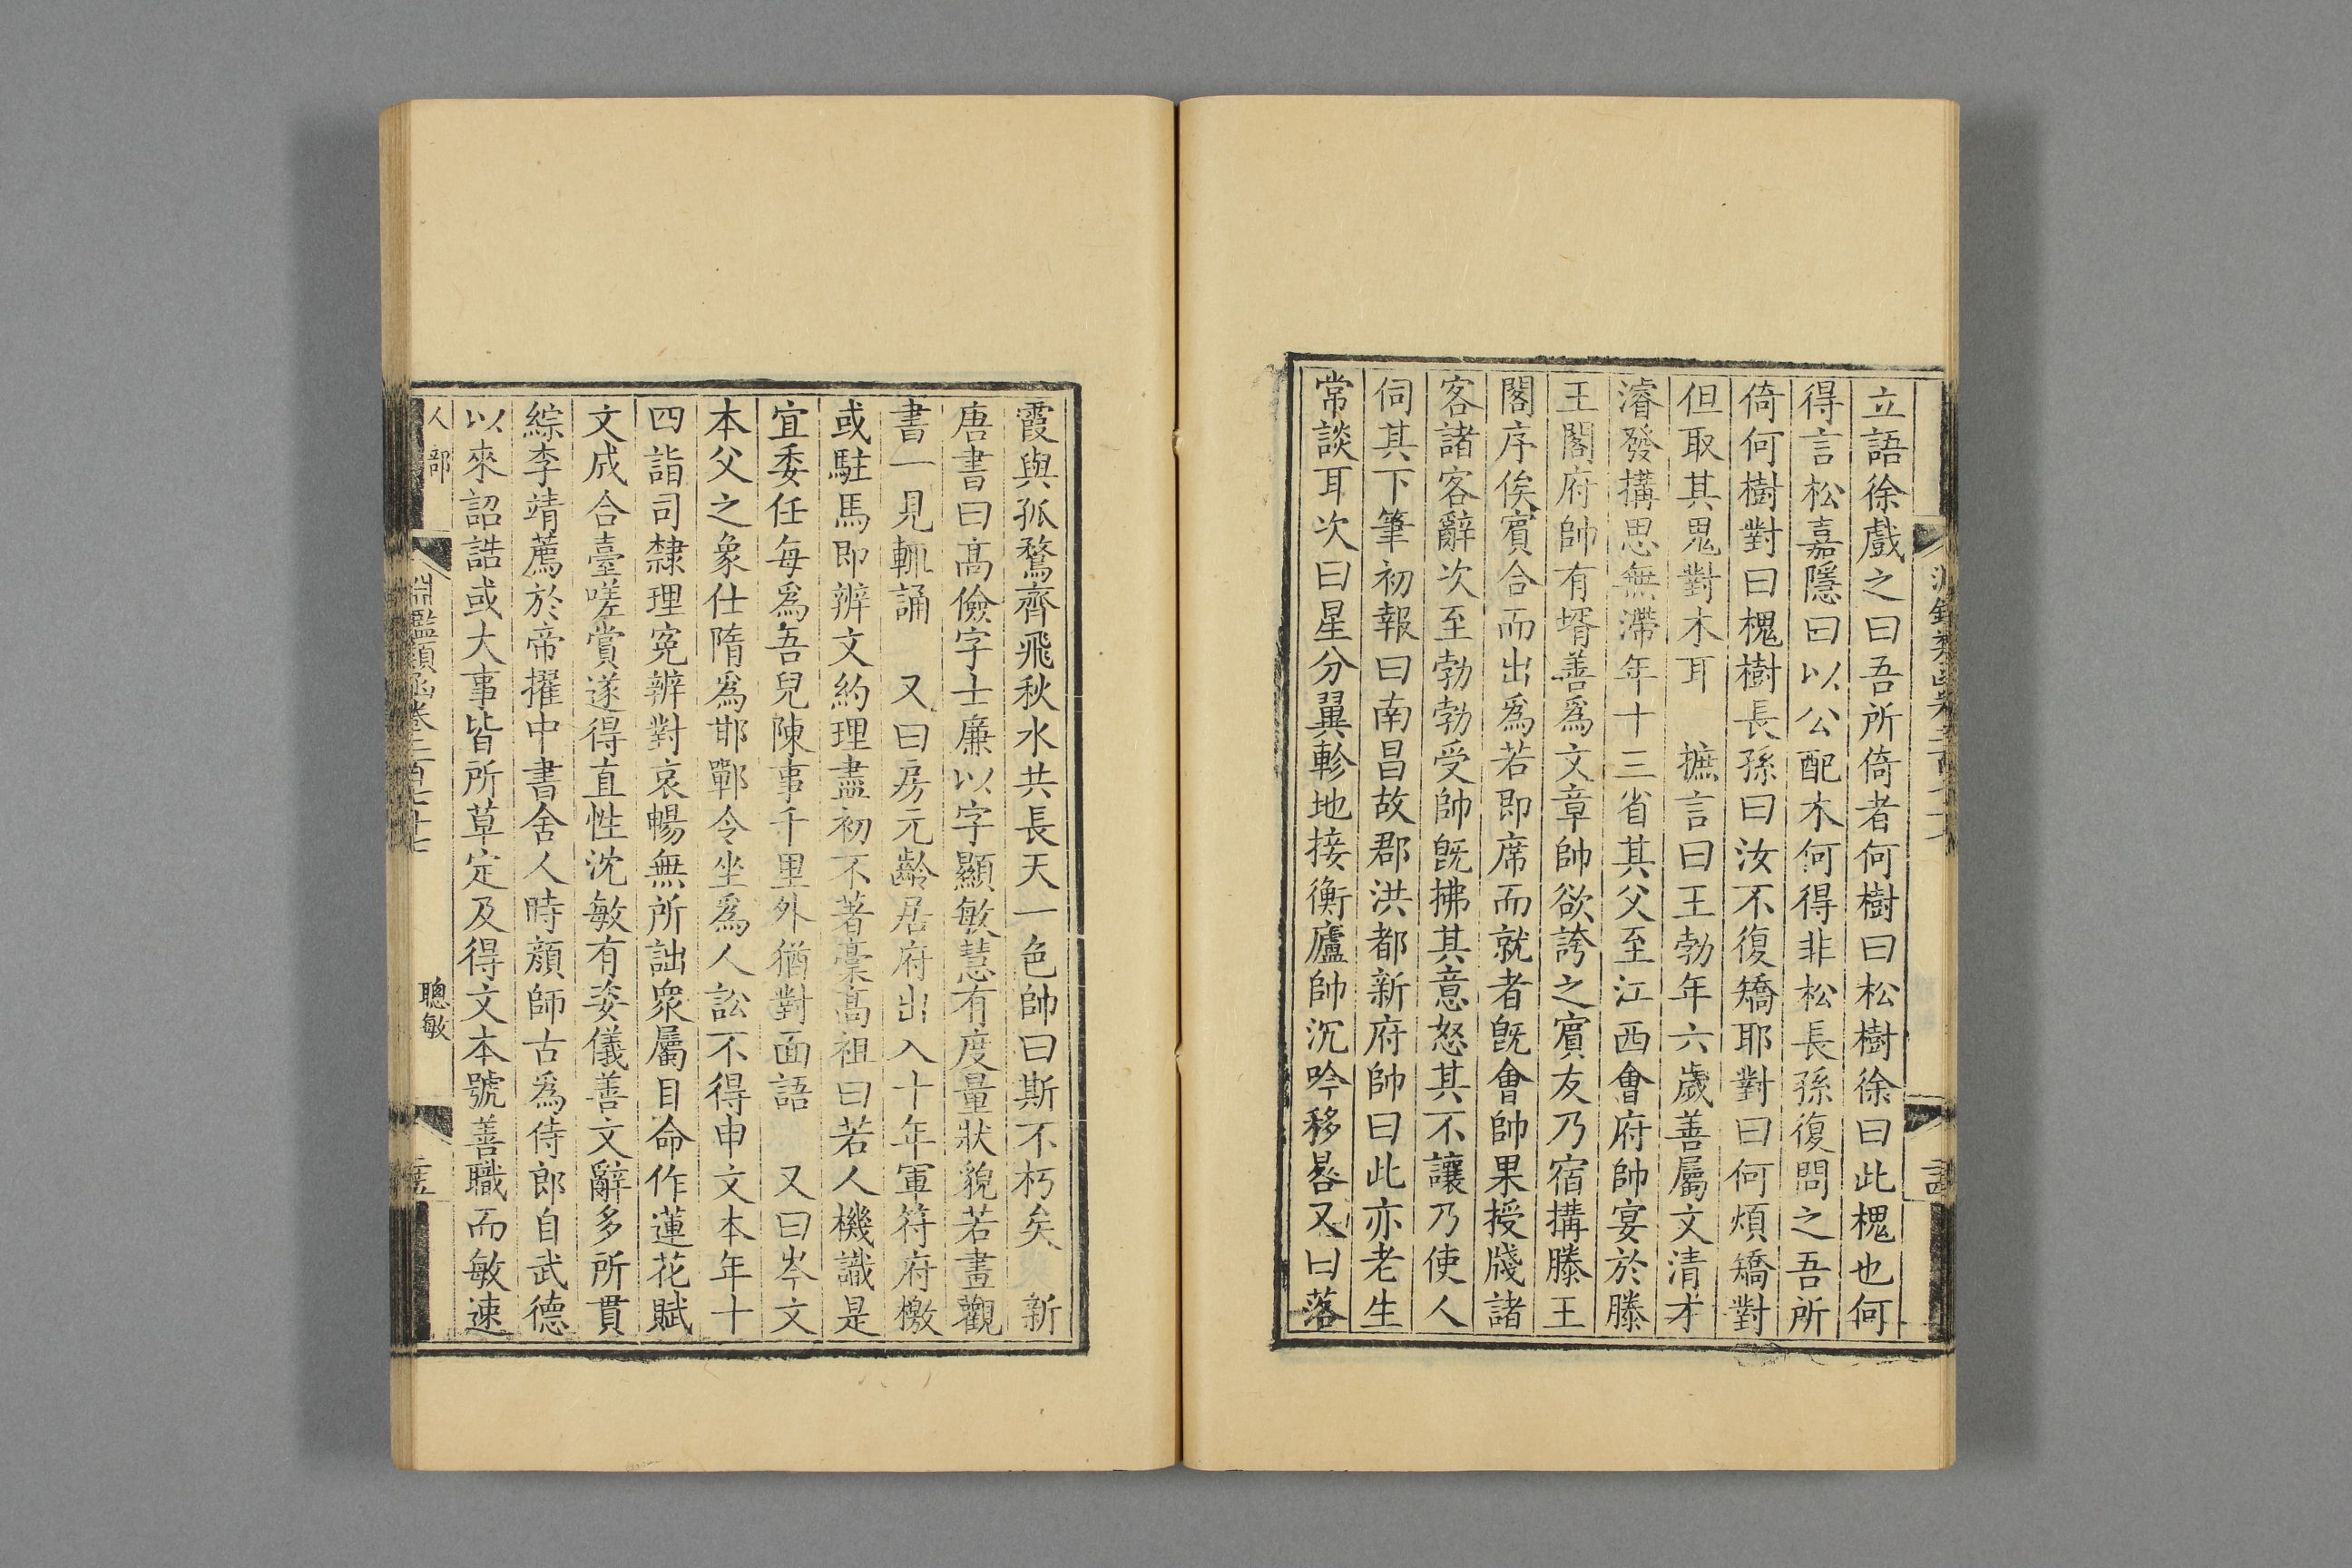 立語徐戲之曰吾所倚者何樹曰松樹徐曰此槐也何
得言松嘉隱曰以公配木何得非松長孫復問之吾所
倚何樹對曰槐樹長孫曰汝不復矯耶對曰何煩矯對
但取其鬼對木耳 摭言曰王勃年六歲善屬文清才
濬發搆思無滯年十三省其父至江西會府帥宴於滕
王閣府帥有壻善爲文章帥欲誇之賓友乃宿搆滕王
閣序俟賓合而出爲若即席而就者旣會帥果授牋諸
客諸客辭次至勃勃受帥旣拂其意怒其不讓乃使人
伺其下筆初報曰南昌故郡洪都新府帥曰此亦老生
常談耳次曰星分翼軫地接衡廬帥沉吟移晷又曰落
霞與孤鶩齊飛秋水共長天一色帥曰斯不朽矣 新
唐書曰高儉字士廉以字顯敏慧有度量狀貌若畫觀
書一見輒誦 又曰房元齡居府出入十年軍符府檄
或駐馬即辨文約理盡初不著稾高祖曰若人機識是
宜委任每爲吾兒陳事千里外猶對面語 又曰岑文
本父之象仕隋爲邯鄲令坐爲人訟不得申文本年十
四詣司隸理寃辨對哀暢無所詘衆屬目命作蓮花賦
文成合臺嗟賞遂得直性沈敏有姿儀善文辭多所貫
綜李靖薦於帝擢中書舍人時顏師古爲侍郎自武德
以來詔誥或大事皆所草定及得文本號善職而敏速
人部
淵鑑類函卷二百七十七
聰敏